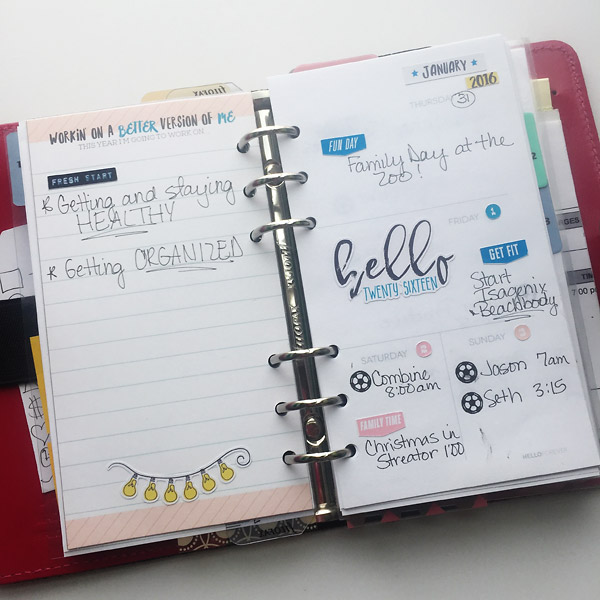 WORKIN ON A BETTER VERSION OF ME
THIS YEAR I'M GOING TO WORK ON...
FRESH START
Getting and staying
HEALTHY
Getting ORGANIZED
JANUARY
2016
THURSDAY 31
FUN DAY
Family Day at the
ZOO!
FRIDAY 1
hello
TWENTY-SIXTEEN
GET FIT
Start
Isagenix
Beachbody
SATURDAY 2
Combine
8:00am
FAMILY TIME
Christmas in
Streator 1:00
SUNDAY 3
Jason 7am
Seth 3:15
HELLO
2
AGES
TIME
7:00 p